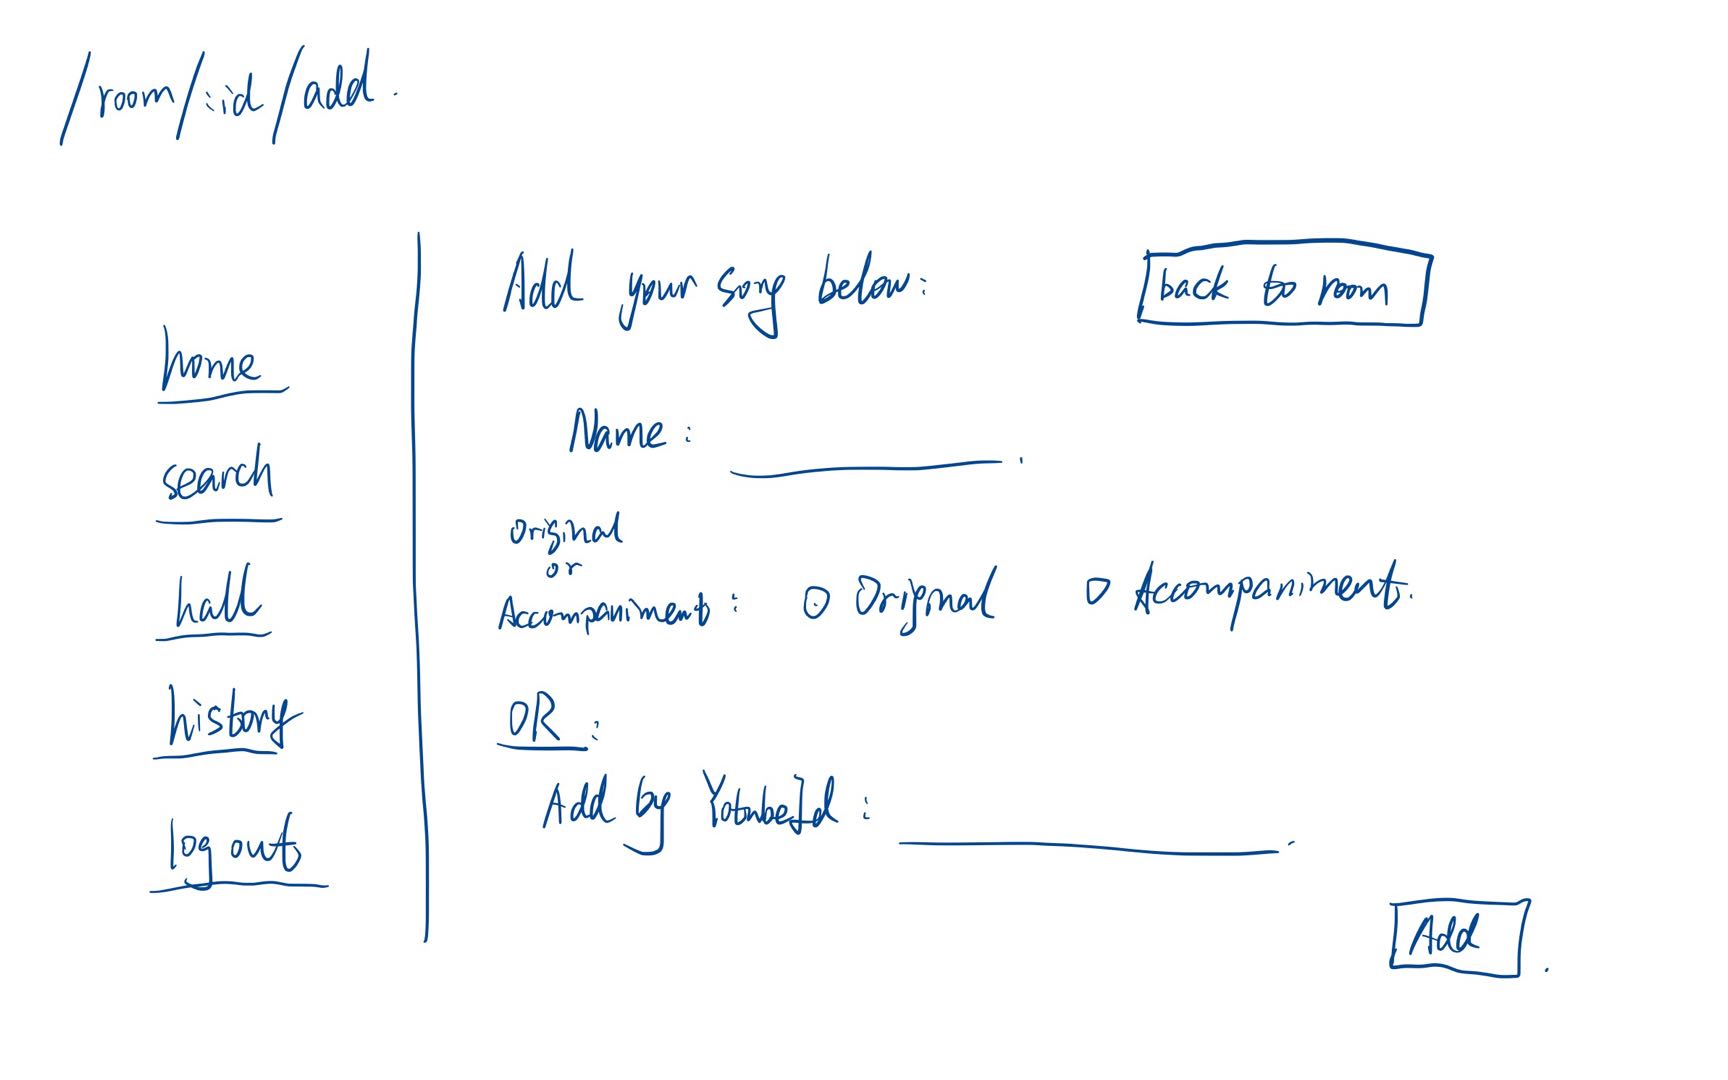 /room/:id/add.
home
search
hall
history
log out
Add your song below:
back to room
Name:
Original
or
Accompaniment:
Original
Accompaniment.
OR:
Add by YotubeId:
Add